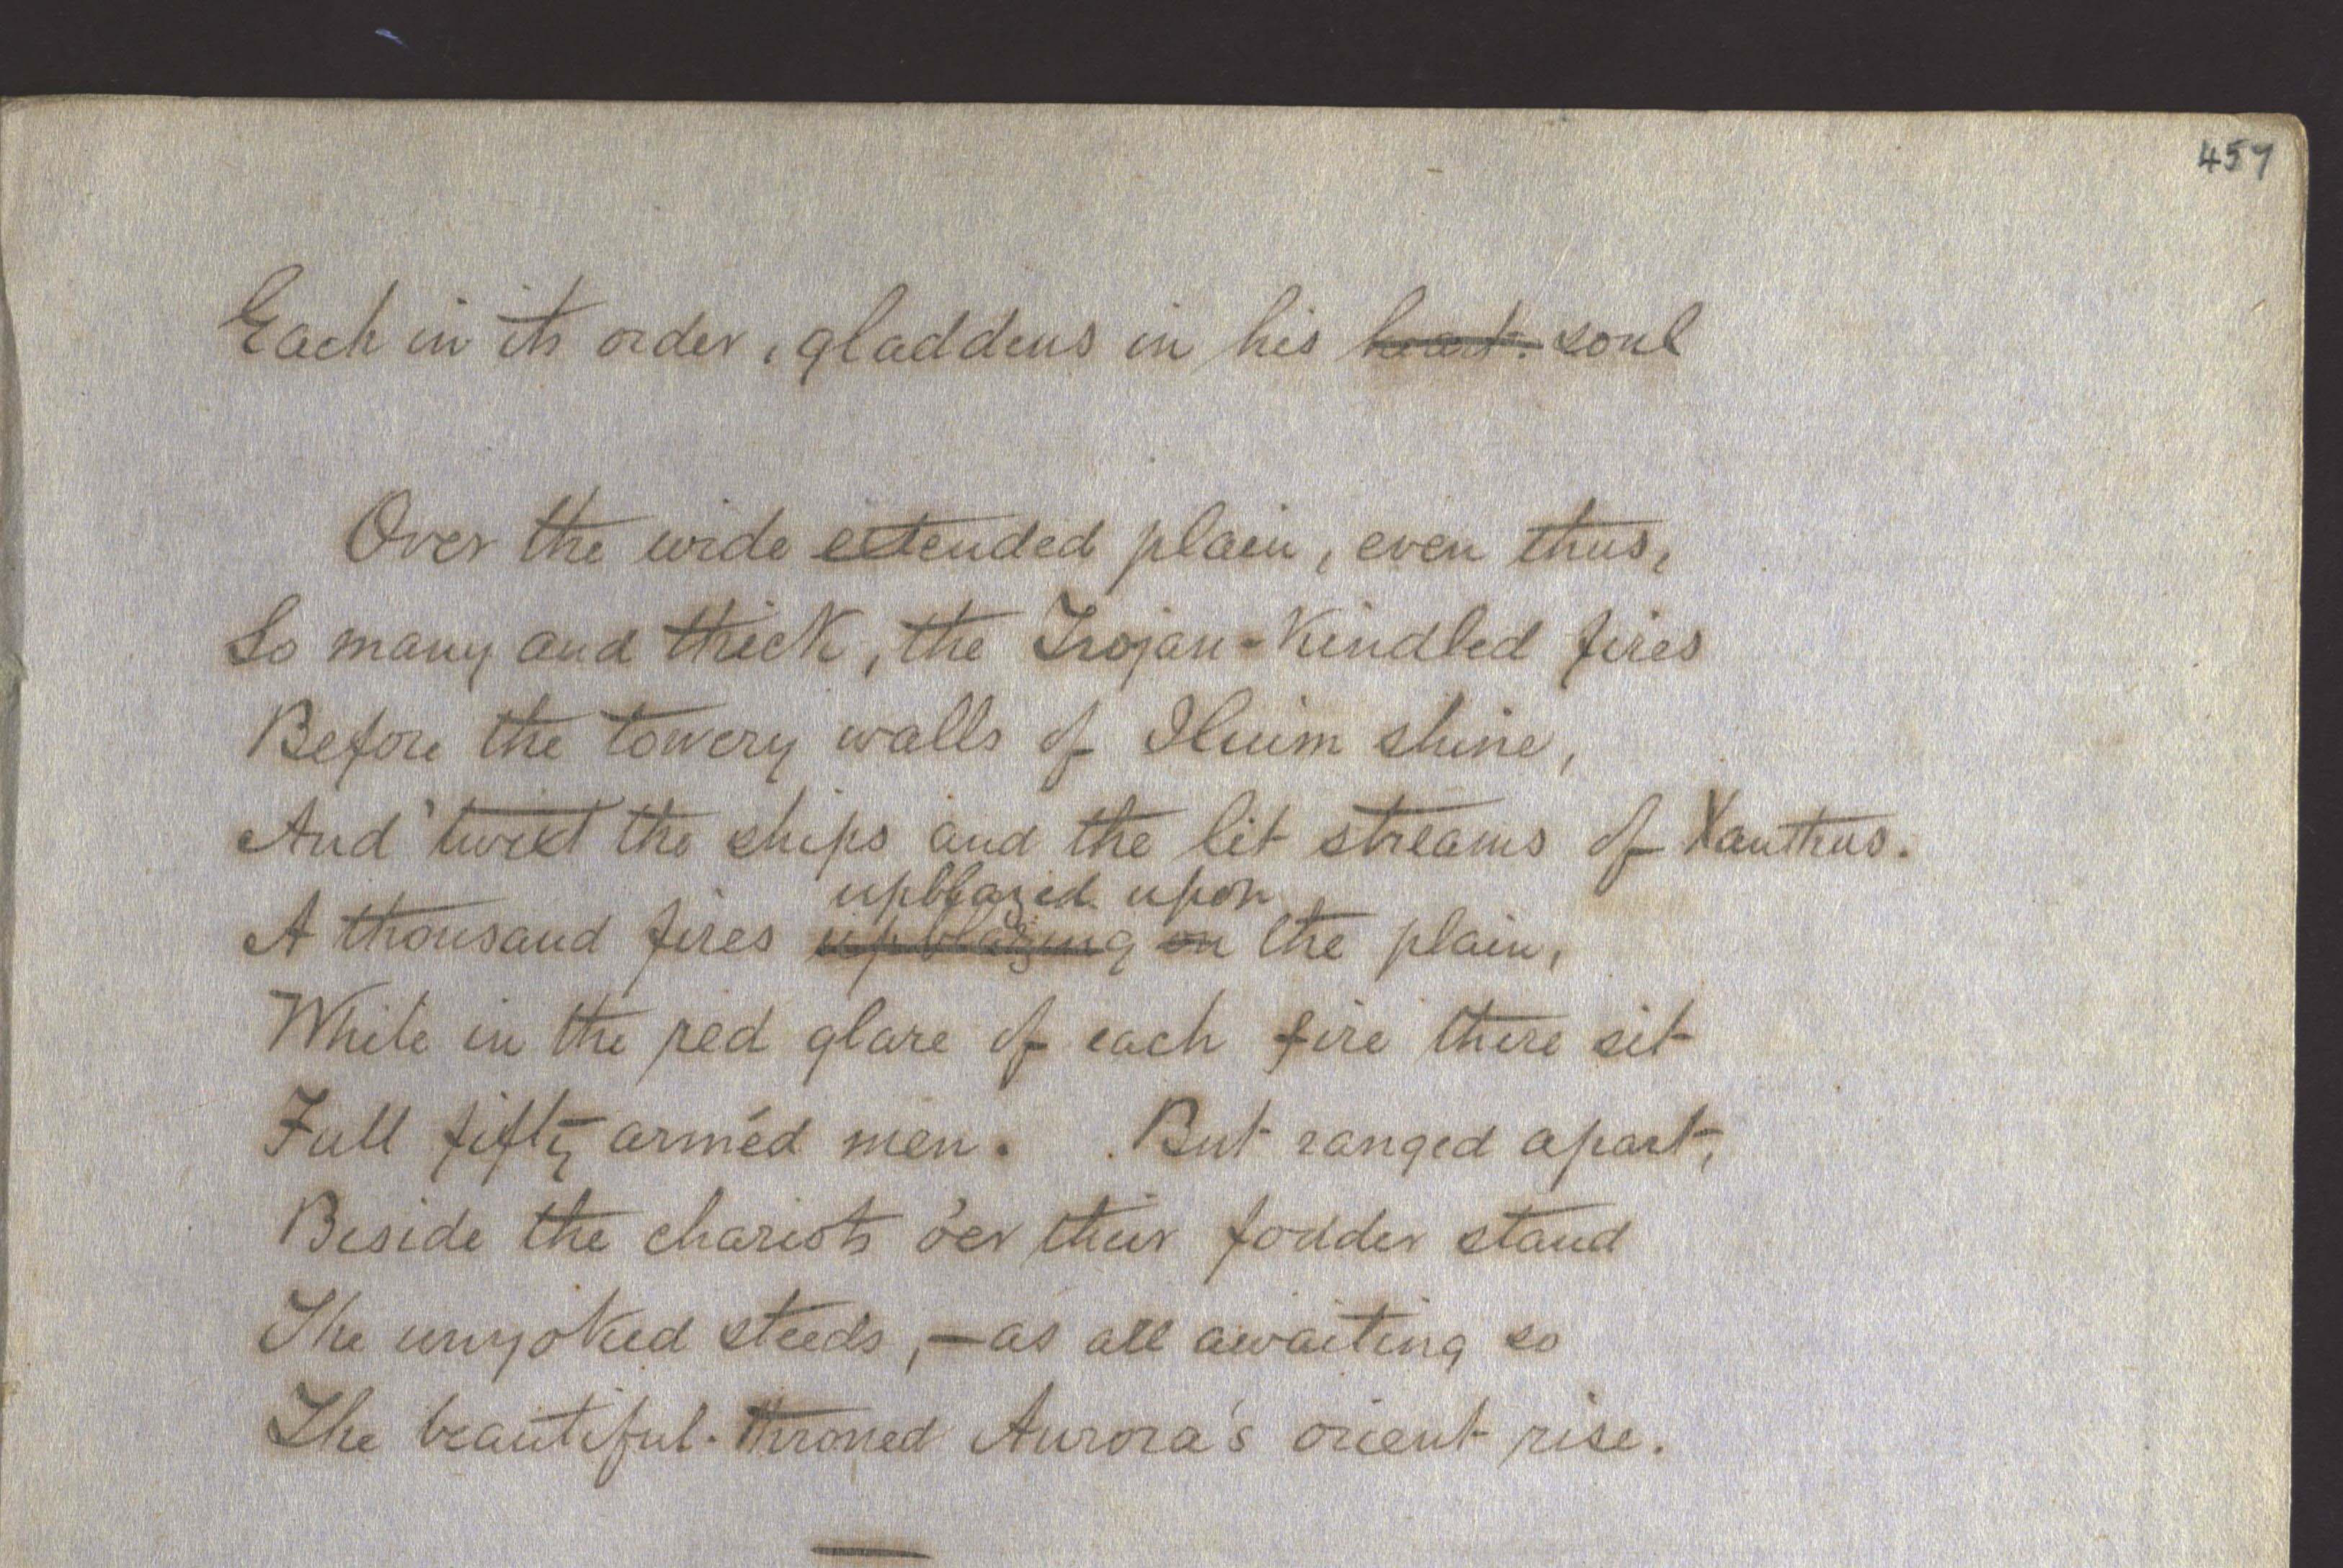 457
Each in its order, gladdens in his heart. soul
Over the wide extended plain, even thus,
So many and thick, the Trojan-Kindled fires
Before the towery walls of Iluim shine,
And 'twixt the ships and the lit streams of Xanthus.
upblazed upon
A thousand fires upblazing on the plain,
While in the red glare of each fire there sit
Full fifty arméd men. But ranged apart,
Beside the chariots o'er their fodder stand
The unyoked steeds,—as all awaiting so
The beautiful-throned Aurora's orient rise.